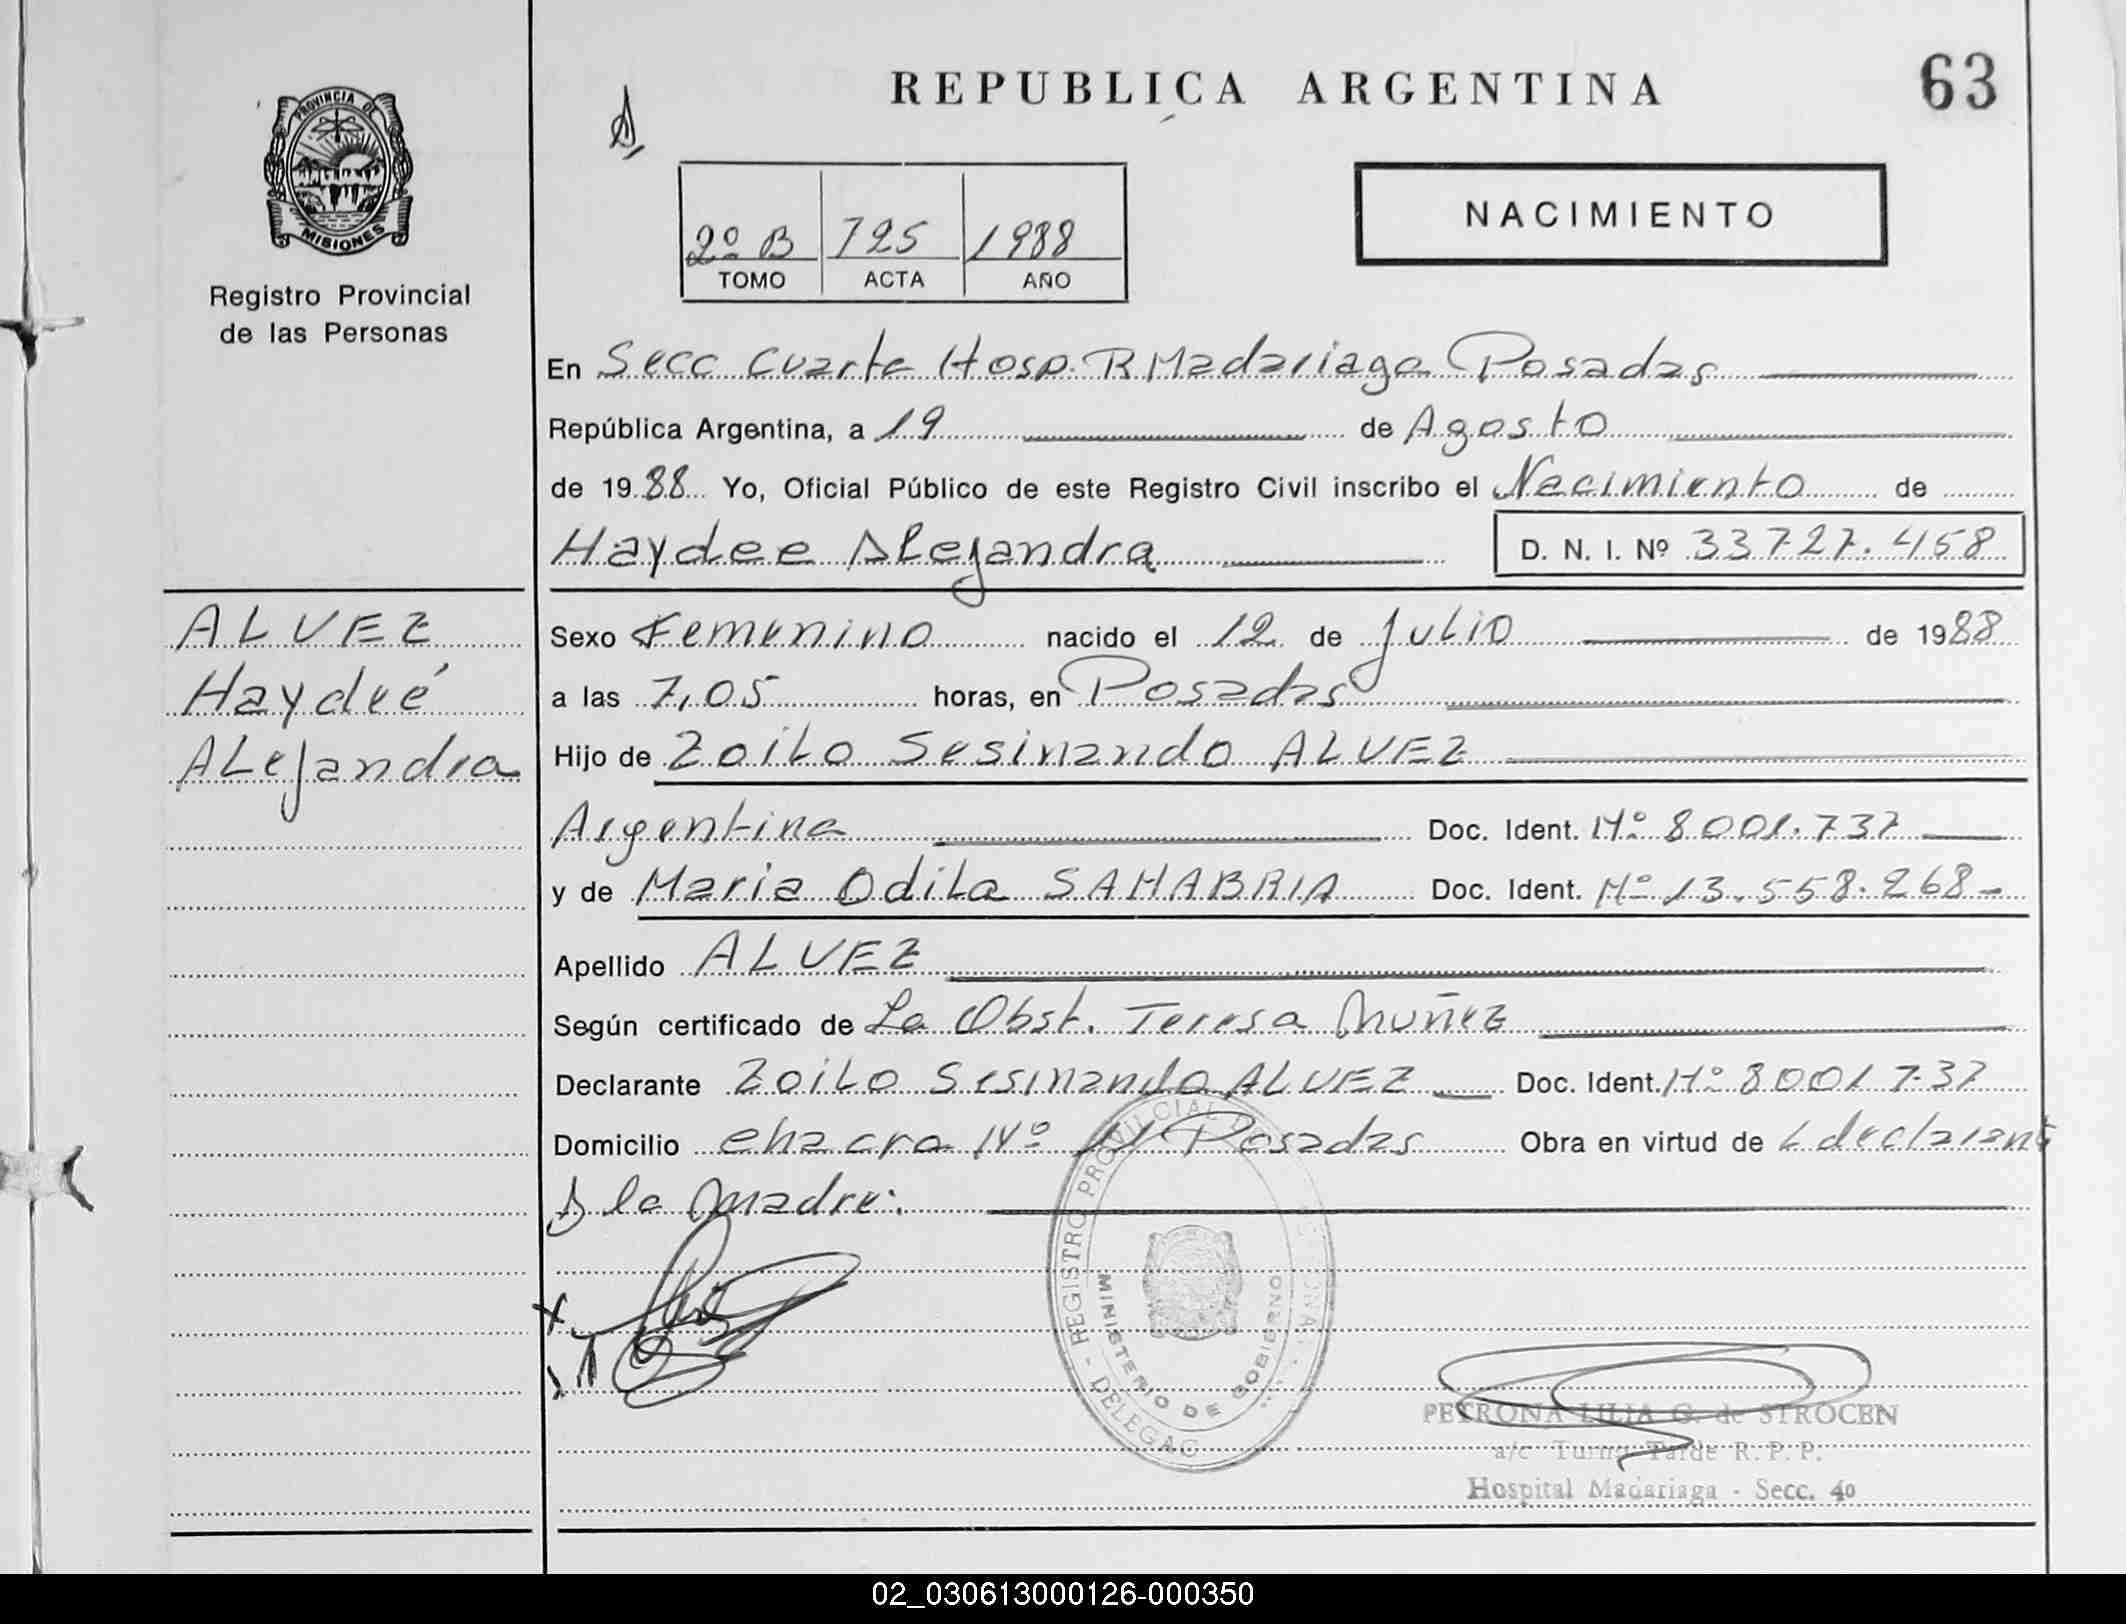 PROVINCIA DE
MISIONES
Registro Provincial
de las Personas
REPUBLICA ARGENTINA
63
2º B 725 1988
TOMO ACTA AÑO
NACIMIENTO
En Secc Cuarta Hosp. R Madariaga Posadas
República Argentina, a 19 de Agosto
de 1988 Yo, Oficial Público de este Registro Civil inscribo el Nacimiento de
Haydee Alejandra D. N. I. Nº 33727.458
ALVEZ
Haydeé
ALejandra
Sexo Femenino nacido el 12 de Julio de 1988
a las 7,05 horas, en Posadas
Hijo de Zoilo Sesinando ALVEZ
Argentina Doc. Ident. Nº 8001.737
y de Maria Odila SANABRIA Doc. Ident. Nº 13.558.268
Apellido ALVEZ
Según certificado de La Obst. Teresa Muñez
Declarante Zoilo Sesinando ALVEZ Doc. Ident. Nº 8001737
Domicilio chacra Nº Posadas Obra en virtud de declarante
la Madre.
REGISTRO PROVINCIAL
MINISTERIO DE GOBIERNO
PETRONA LILIA G. de STROCEN
a/c Turno Tarde R. P. P.
Hospital Madariaga - Secc. 4o
02_030613000126-000350